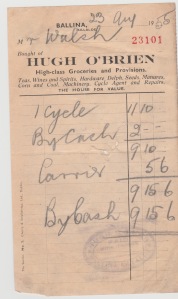 BALLINA,
23 Aug 1955
Mr Walsh
23101
Bought of
HUGH O'BRIEN
High-class Groceries and Provisions.
Teas, Wines and Spirits, Hardware, Delph, Seeds, Manures,
Corn and Coal, Machinery, Cycle Agent and Repairs.
THE HOUSE FOR VALUE.
1 Cycle 11 10
By Cash 2 - -
9 10
Carrier 5 6
9 15 6
By Cash 9 15 6